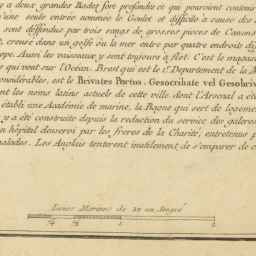 a deux grandes Rades fort profondes et qui peuvent conteni
d'une seule entrée nommée le Goulet et difficile a cause des
sont deffendus par trois rangs de grosses pieces de Canons
t, creuse dans un golfe où la mer entre par quatre endroits di
epe. Aussi les vaisseaux y sont toujours a flot. C'est le magazi
s qui vont sur l'Ocean. Brest qui est le 1er Departement de la M
considerables, est le Brivates Portus, Gesocribate vel Gesobriv
nt les noms latins actuels de cette ville dont l'Arsenal a ét
établi une Académie de marine, la Bagne qui sert de logeme
y a été construite depuis la reduction du service des galeres
n hôpital desservi par les freres de la Charité, entretenus p
malades. Les Anglais tenterent inutilement de s'emparer de c
Lieues Marines de 20 au Degré
1
2